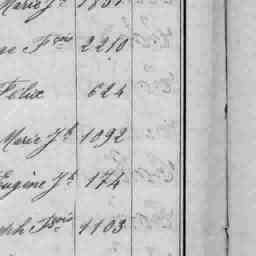 Marie Jh 1851
ne Fcois 2210
Felix 624
Marie Jh 1092
Eugène Jh 174
ph Fcois 1103